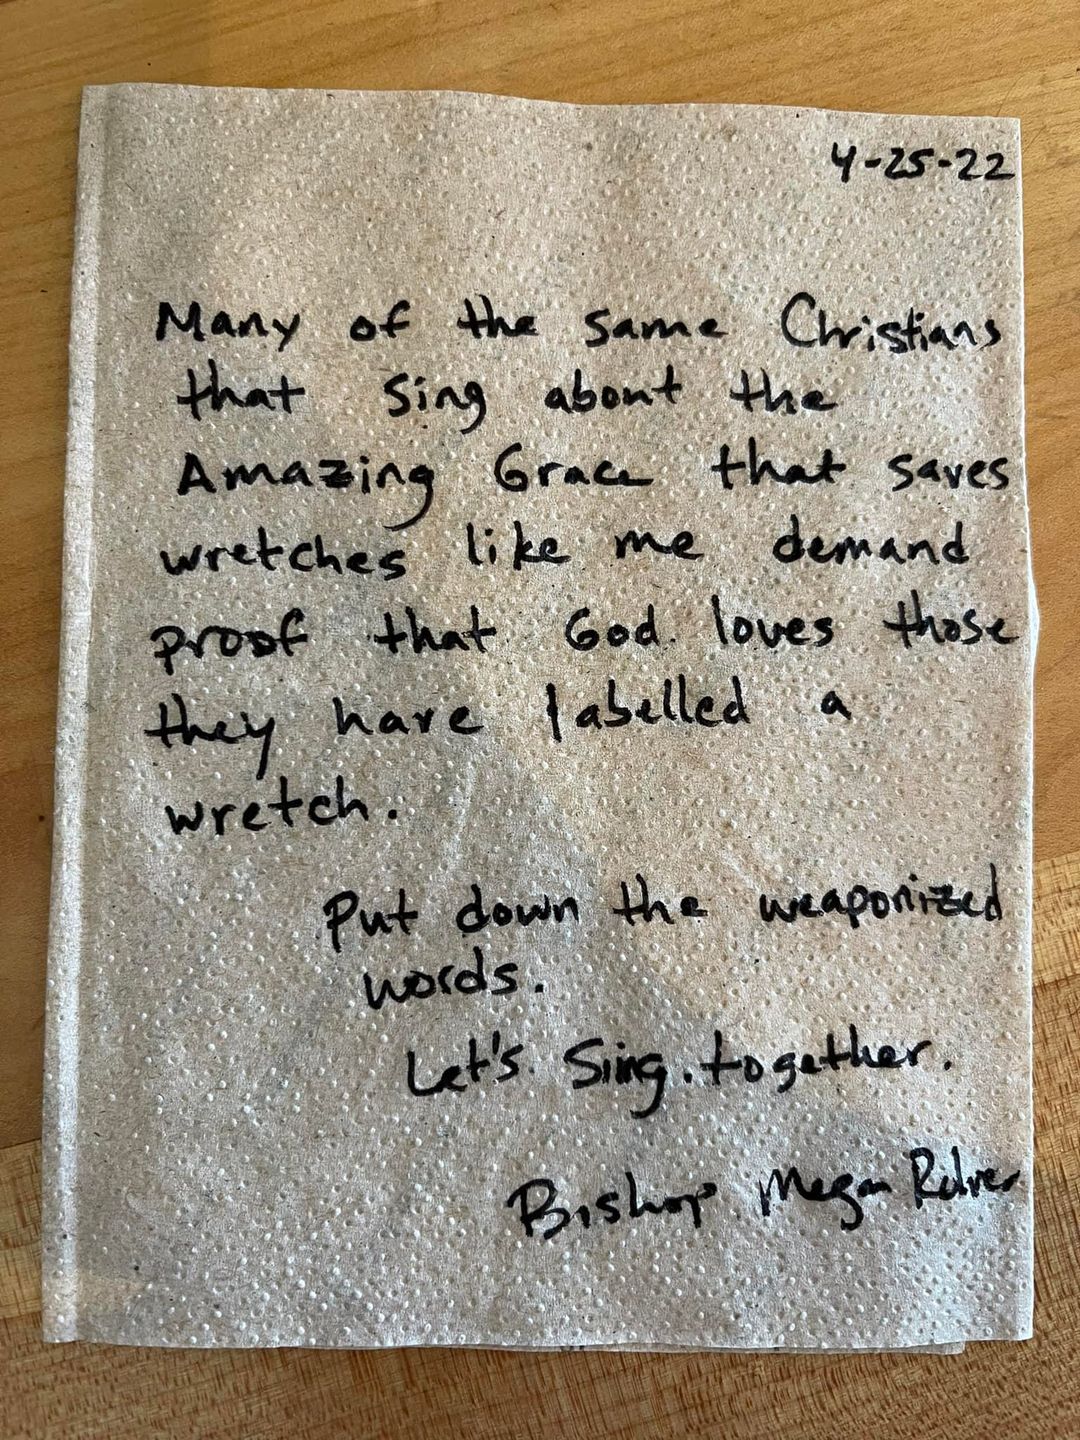 4-25-22
Many of the same Christians
that sing about the
Amazing Grace that saves
wretches like me demand
proof that God loves those
they have labelled a
wretch.
Put down the weaponized
words.
Let's Sing together.
Bishop Megan